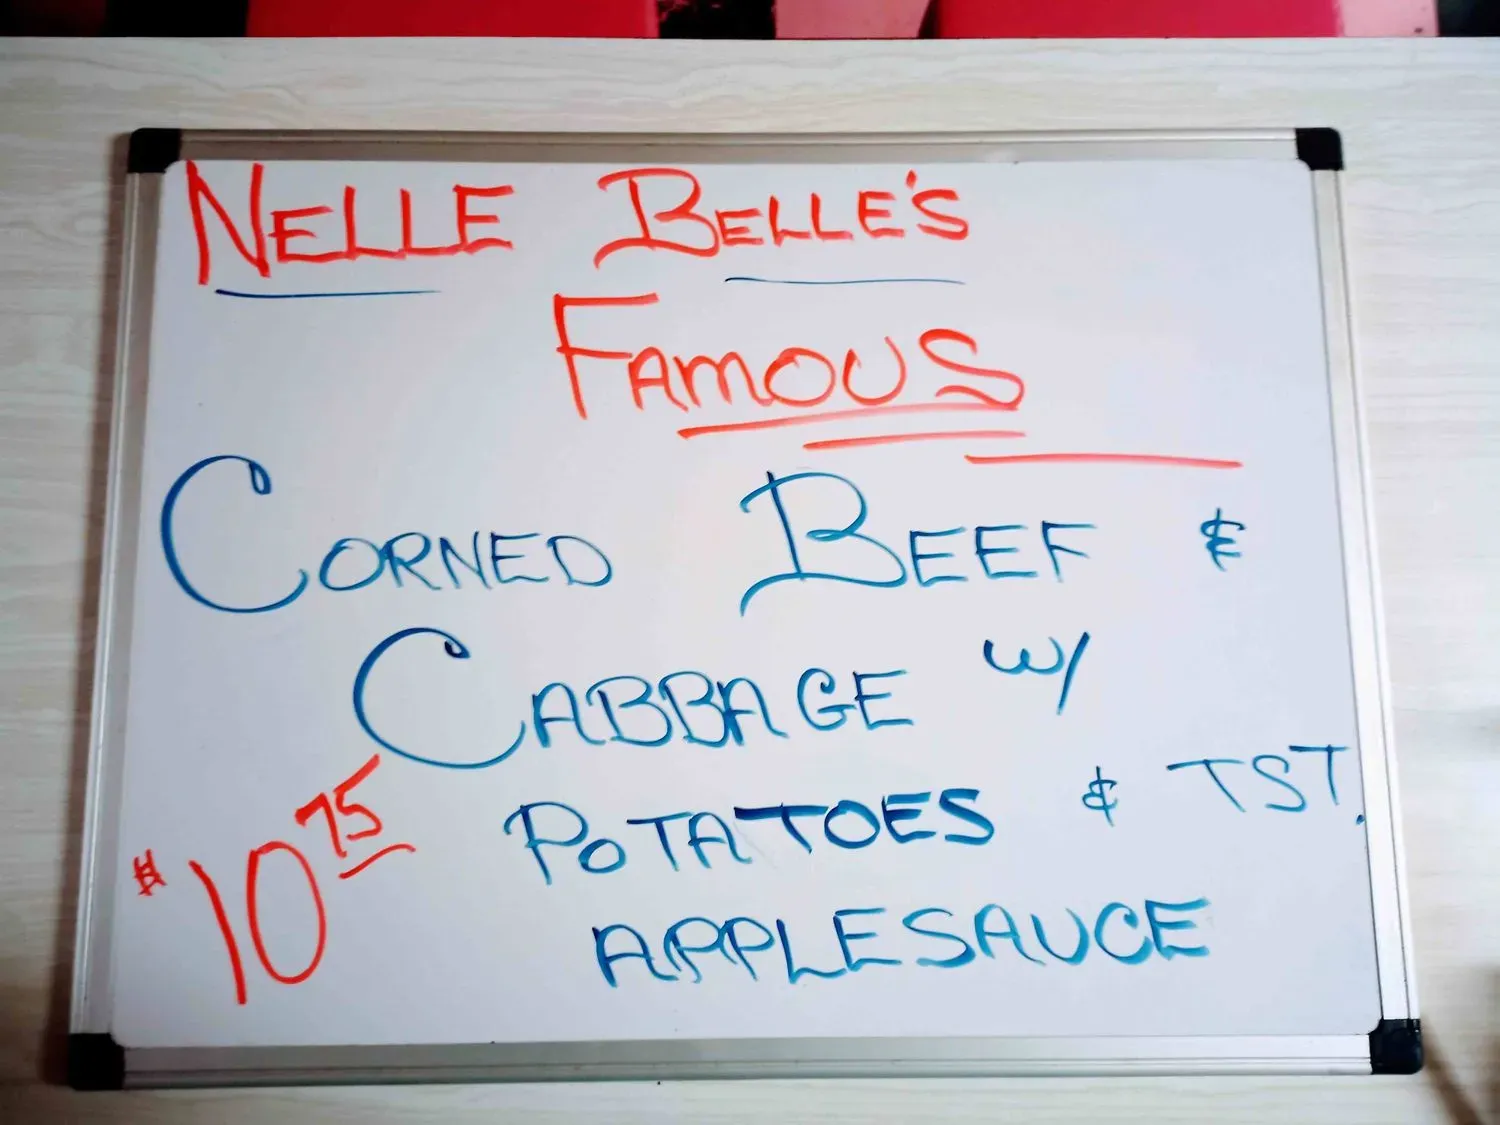 NELLE BELLE'S
FAMOUS
CORNED BEEF &
CABBAGE W/
POTATOES & TST.
APPLESAUCE
$10.75